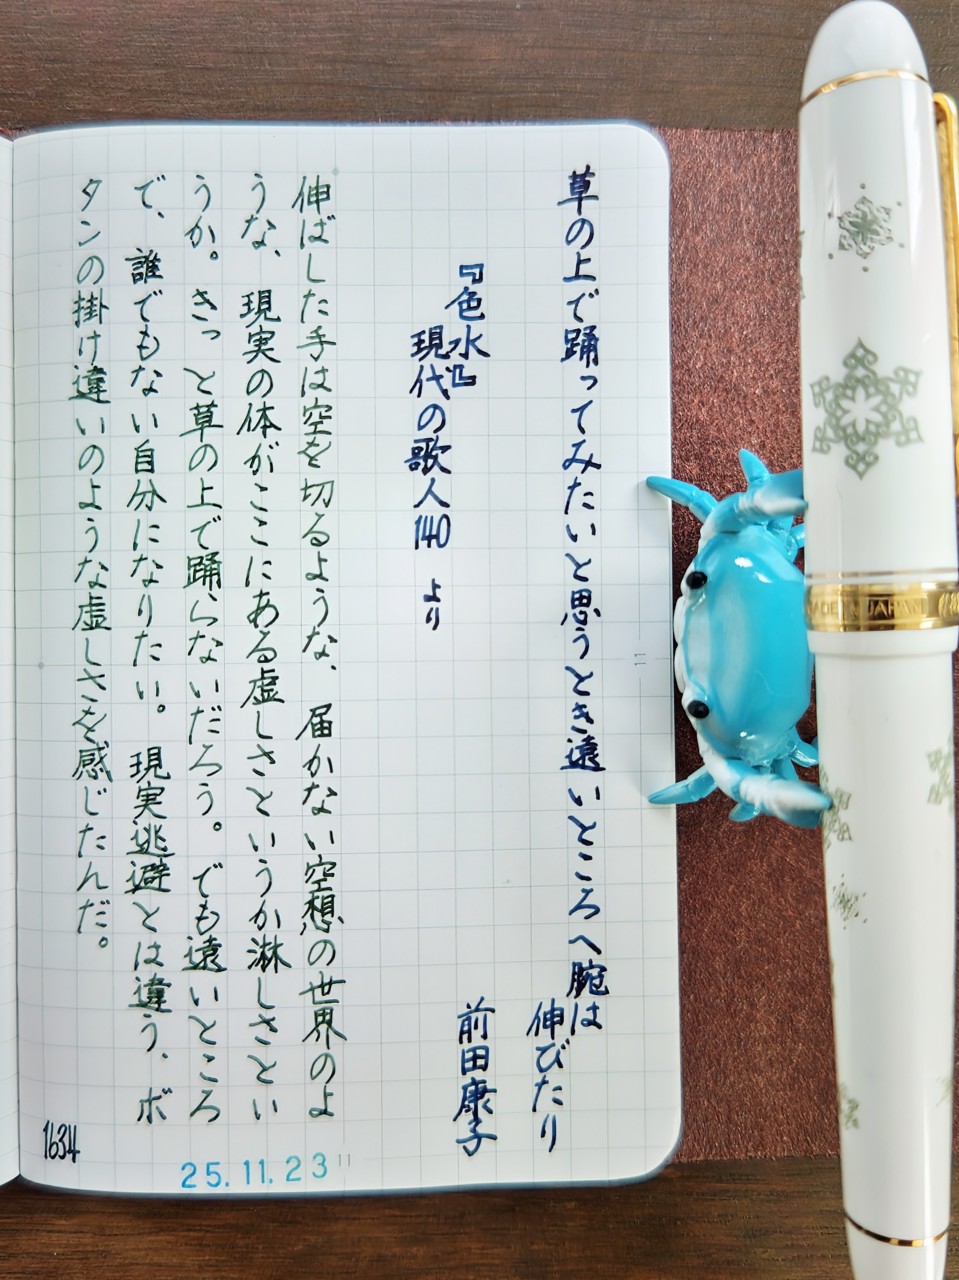 草の上で踊ってみたいと思うとき遠いところへ腕は
伸びたり
前田康子
『色水』
現代の歌人140 より
伸ばした手は空を切るような、届かない空想の世界のよ
うな、現実の体がここにある虚しさというか淋しさとい
うか。きっと草の上で踊らないだろう。でも遠いところ
で、誰でもない自分になりたい。現実逃避とは違う、ボ
タンの掛け違いのような虚しさを感じたんだ。
1634
25.11.23
11
MADE IN JAPAN